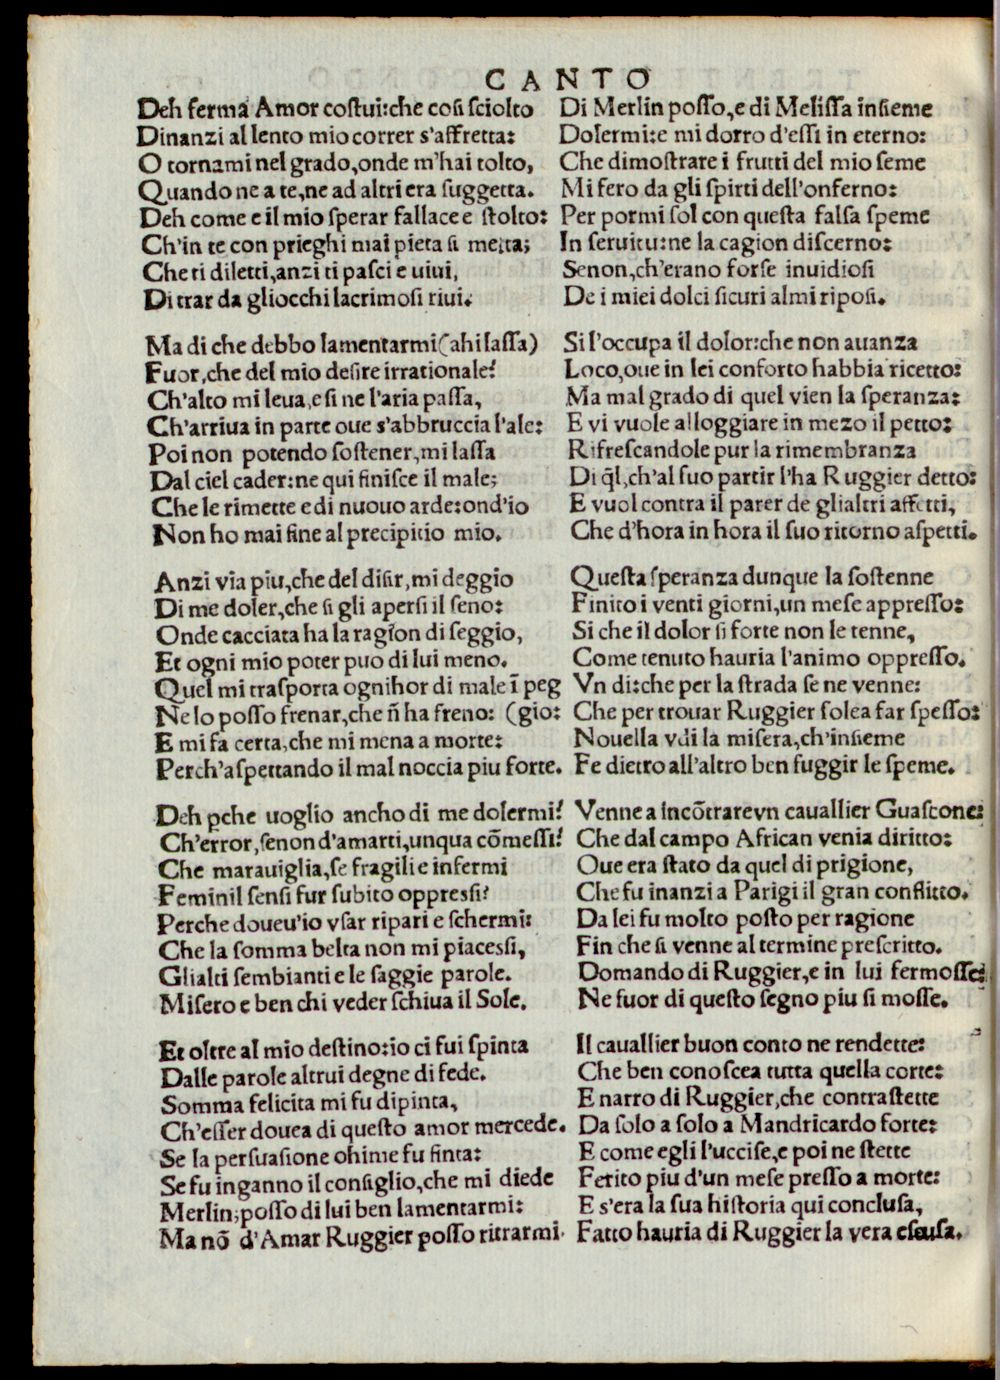 CANTO
Deh ferma Amor costui:che cosi sciolto
Dinanzi al lento mio correr s'affretta:
O tornami nel grado,onde m'hai tolto,
Quando ne a te,ne ad altri era suggetta.
Deh come e il mio sperar fallace e stolto:
Ch'in te con prieghi mai pieta si metta;
Che ti diletti,anzi ti pasci e uiui,
Di trar da gliocchi lacrimosi riui.
Ma di che debbo lamentarmi(ahi lassa)
Fuor,che del mio desire irrationale?
Ch'alto mi leua,e si ne l'aria passa,
Ch'arriua in parte oue s'abbruccia l'ale:
Poi non potendo sostener,mi lassa
Dal ciel cader:ne qui finisce il male;
Che le rimette e di nuouo arde:ond'io
Non ho mai fine al precipitio mio.
Anzi via piu,che del disir,mi deggio
Di me doler,che si gli apersi il seno:
Onde cacciata ha la ragion di seggio,
Et ogni mio poter puo di lui meno.
Quel mi trasporta ognihor di male ī peg
Ne lo posso frenar,che ñ ha freno: (gio:
E mi fa certa,che mi mena a morte:
Perch'aspettando il mal noccia piu forte.
Deh ꝑche uoglio ancho di me dolermi?
Ch'error,senon d'amarti,unqua cōmessi?
Che marauiglia,se fragili e infermi
Feminil sensi fur subito oppressi?
Perche doueu'io vsar ripari e schermi:
Che la somma belta non mi piacessi,
Glialti sembianti e le saggie parole.
Misero e ben chi veder schiua il Sole.
Et oltre al mio destino:io ci fui spinta
Dalle parole altrui degne di fede.
Somma felicita mi fu dipinta,
Ch'esser douea di questo amor mercede.
Se la persuasione ohime fu finta:
Se fu inganno il consiglio,che mi diede
Merlin;posso di lui ben lamentarmi:
Ma nō d'Amar Ruggier posso ritrarmi.
Di Merlin posso,e di Melissa insieme
Dolermi:e mi dorro d'essi in eterno:
Che dimostrare i frutti del mio seme
Mi fero da gli spirti dell'onferno:
Per pormi sol con questa falsa speme
In seruitu:ne la cagion discerno:
Senon,ch'erano forse inuidiosi
De i miei dolci sicuri almi riposi.
Si l'occupa il dolor:che non auanza
Loco,oue in lei conforto habbia ricetto:
Ma mal grado di quel vien la speranza:
E vi vuole alloggiare in mezo il petto:
Rifrescandole pur la rimembranza
Di q̄l,ch'al suo partir l'ha Ruggier detto:
E vuol contra il parer de glialtri affetti,
Che d'hora in hora il suo ritorno aspetti.
Questa speranza dunque la sostenne
Finito i venti giorni,un mese appresso:
Si che il dolor si forte non le tenne,
Come tenuto hauria l'animo oppresso.
Vn di:che per la strada se ne venne:
Che per trouar Ruggier solea far spesso:
Nouella vdi la misera,ch'insieme
Fe dietro all'altro ben fuggir le speme.
Venne a incōtrare vn cauallier Guascone:
Che dal campo African venia diritto:
Oue era stato da quel di prigione,
Che fu inanzi a Parigi il gran conflitto.
Da lei fu molto posto per ragione
Fin che si venne al termine prescritto.
Domando di Ruggier,e in lui fermosse:
Ne fuor di questo segno piu si mosse.
Il cauallier buon conto ne rendette:
Che ben conoscea tutta quella corte:
E narro di Ruggier,che contrastette
Da solo a solo a Mandricardo forte:
E come egli l'uccise,e poi ne stette
Ferito piu d'un mese presso a morte:
E s'era la sua historia qui conclusa,
Fatto hauria di Ruggier la vera escusa.